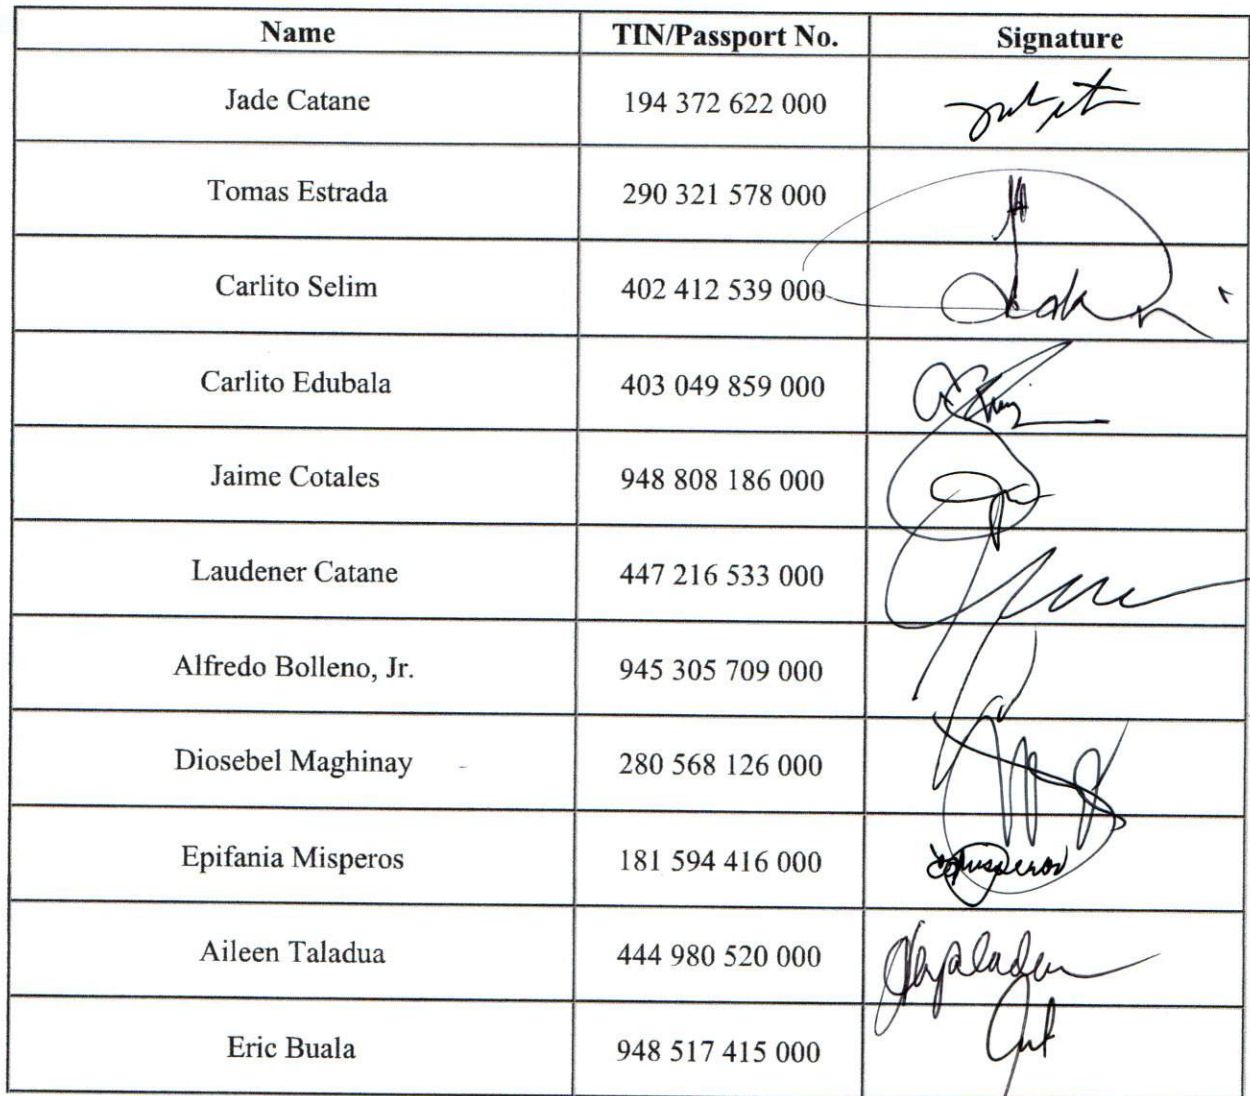 Name TIN/Passport No. Signature
Jade Catane 194 372 622 000
Tomas Estrada 290 321 578 000
Carlito Selim 402 412 539 000
Carlito Edubala 403 049 859 000
Jaime Cotales 948 808 186 000
Laudener Catane 447 216 533 000
Alfredo Bolleno, Jr. 945 305 709 000
Diosebel Maghinay 280 568 126 000
Epifania Misperos 181 594 416 000
Aileen Taladua 444 980 520 000
Eric Buala 948 517 415 000